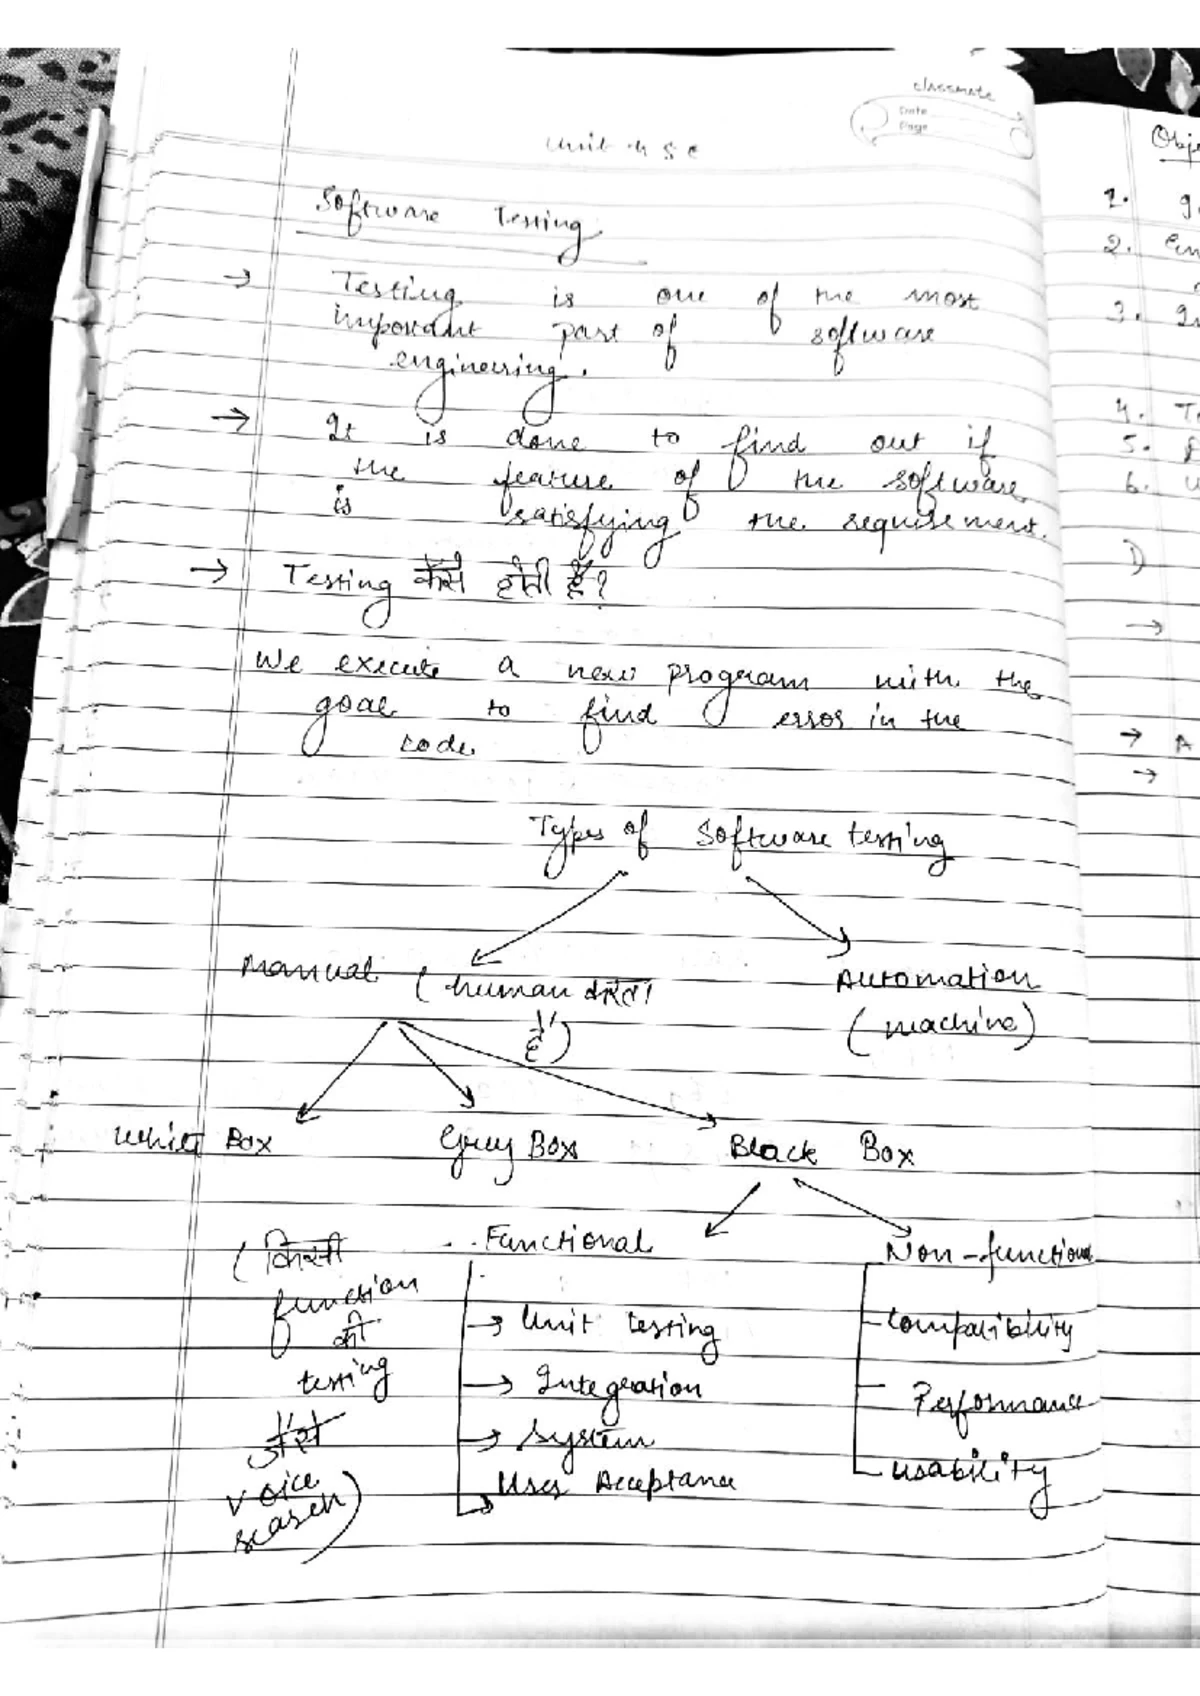 classmate
Date
Page
Unit 4 SE
Software Testing
→ Testing is one of the most
important part of software
engineering.
→ It is done to find out if
the feature of the software
is satisfying the requirement.
→ Testing कैसे होती है?
We execute a new program with the
goal to find error in the
code
Types of Software testing
Manual (human करता
है)
Automation
(machine)
White Box
Grey Box
Black Box
(किसी
function
की
testing
जैसे
voice
search)
Functional
→ Unit testing
→ Integration
→ System
→ User Acceptance
Non-functional
Compatibility
Performance
Usability
1.
2.
3.
4.
5.
6.
→
→ A
→